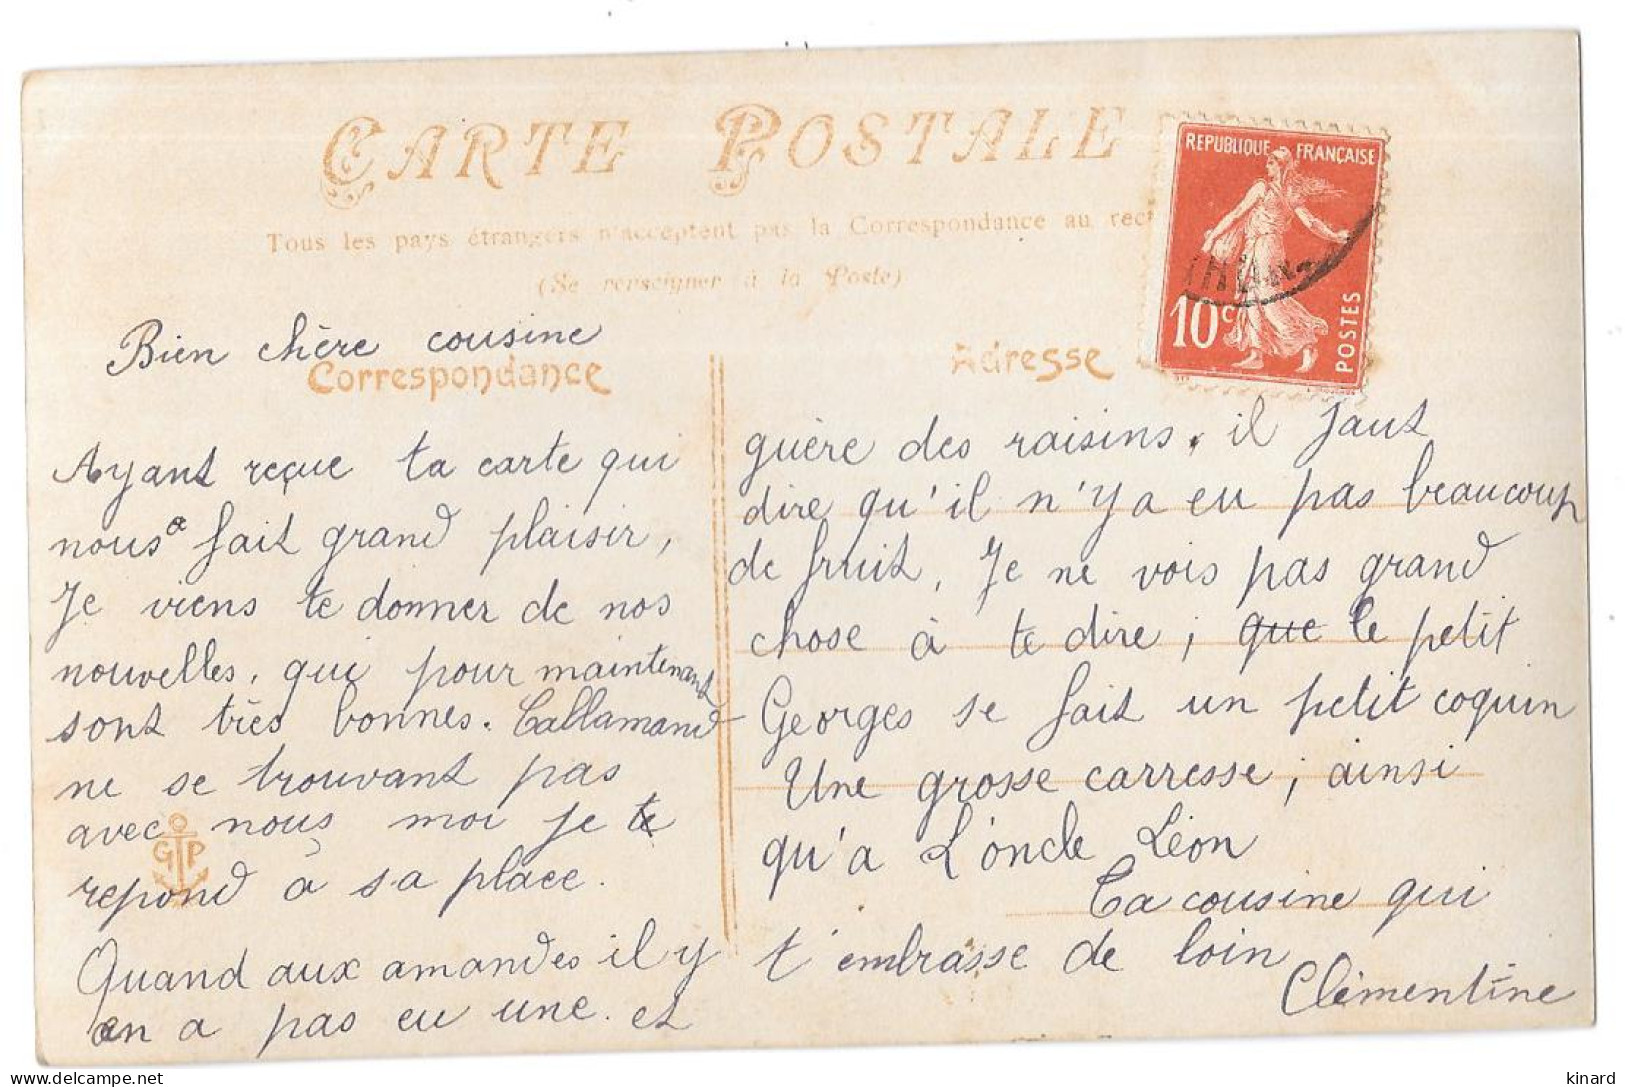 CARTE POSTALE
Tous les pays étrangers n'acceptent pas la Correspondance au rect
(Se renseigner à la Poste)
REPUBLIQUE FRANÇAISE
10c
POSTES
Correspondance
Adresse
Bien chère cousine
Ayant reçue ta carte qui
nous a fait grand plaisir,
Je viens te donner de nos
nouvelles. qui pour maintenant
sont très bonnes. Callamand
ne se trouvant pas
avec nous moi je te
repond à sa place.
Quand aux amandes il y
en a pas eu une. et
GP
guère des raisins. il faut
dire qu'il n'y a eu pas beaucoup
de fruit. Je ne vois pas grand
chose à te dire ; que le petit
Georges se fait un petit coquin
Une grosse carresse ; ainsi
qu'a L'oncle Léon
Ta cousine qui
t'embrasse de loin
Clèmentine
kinard